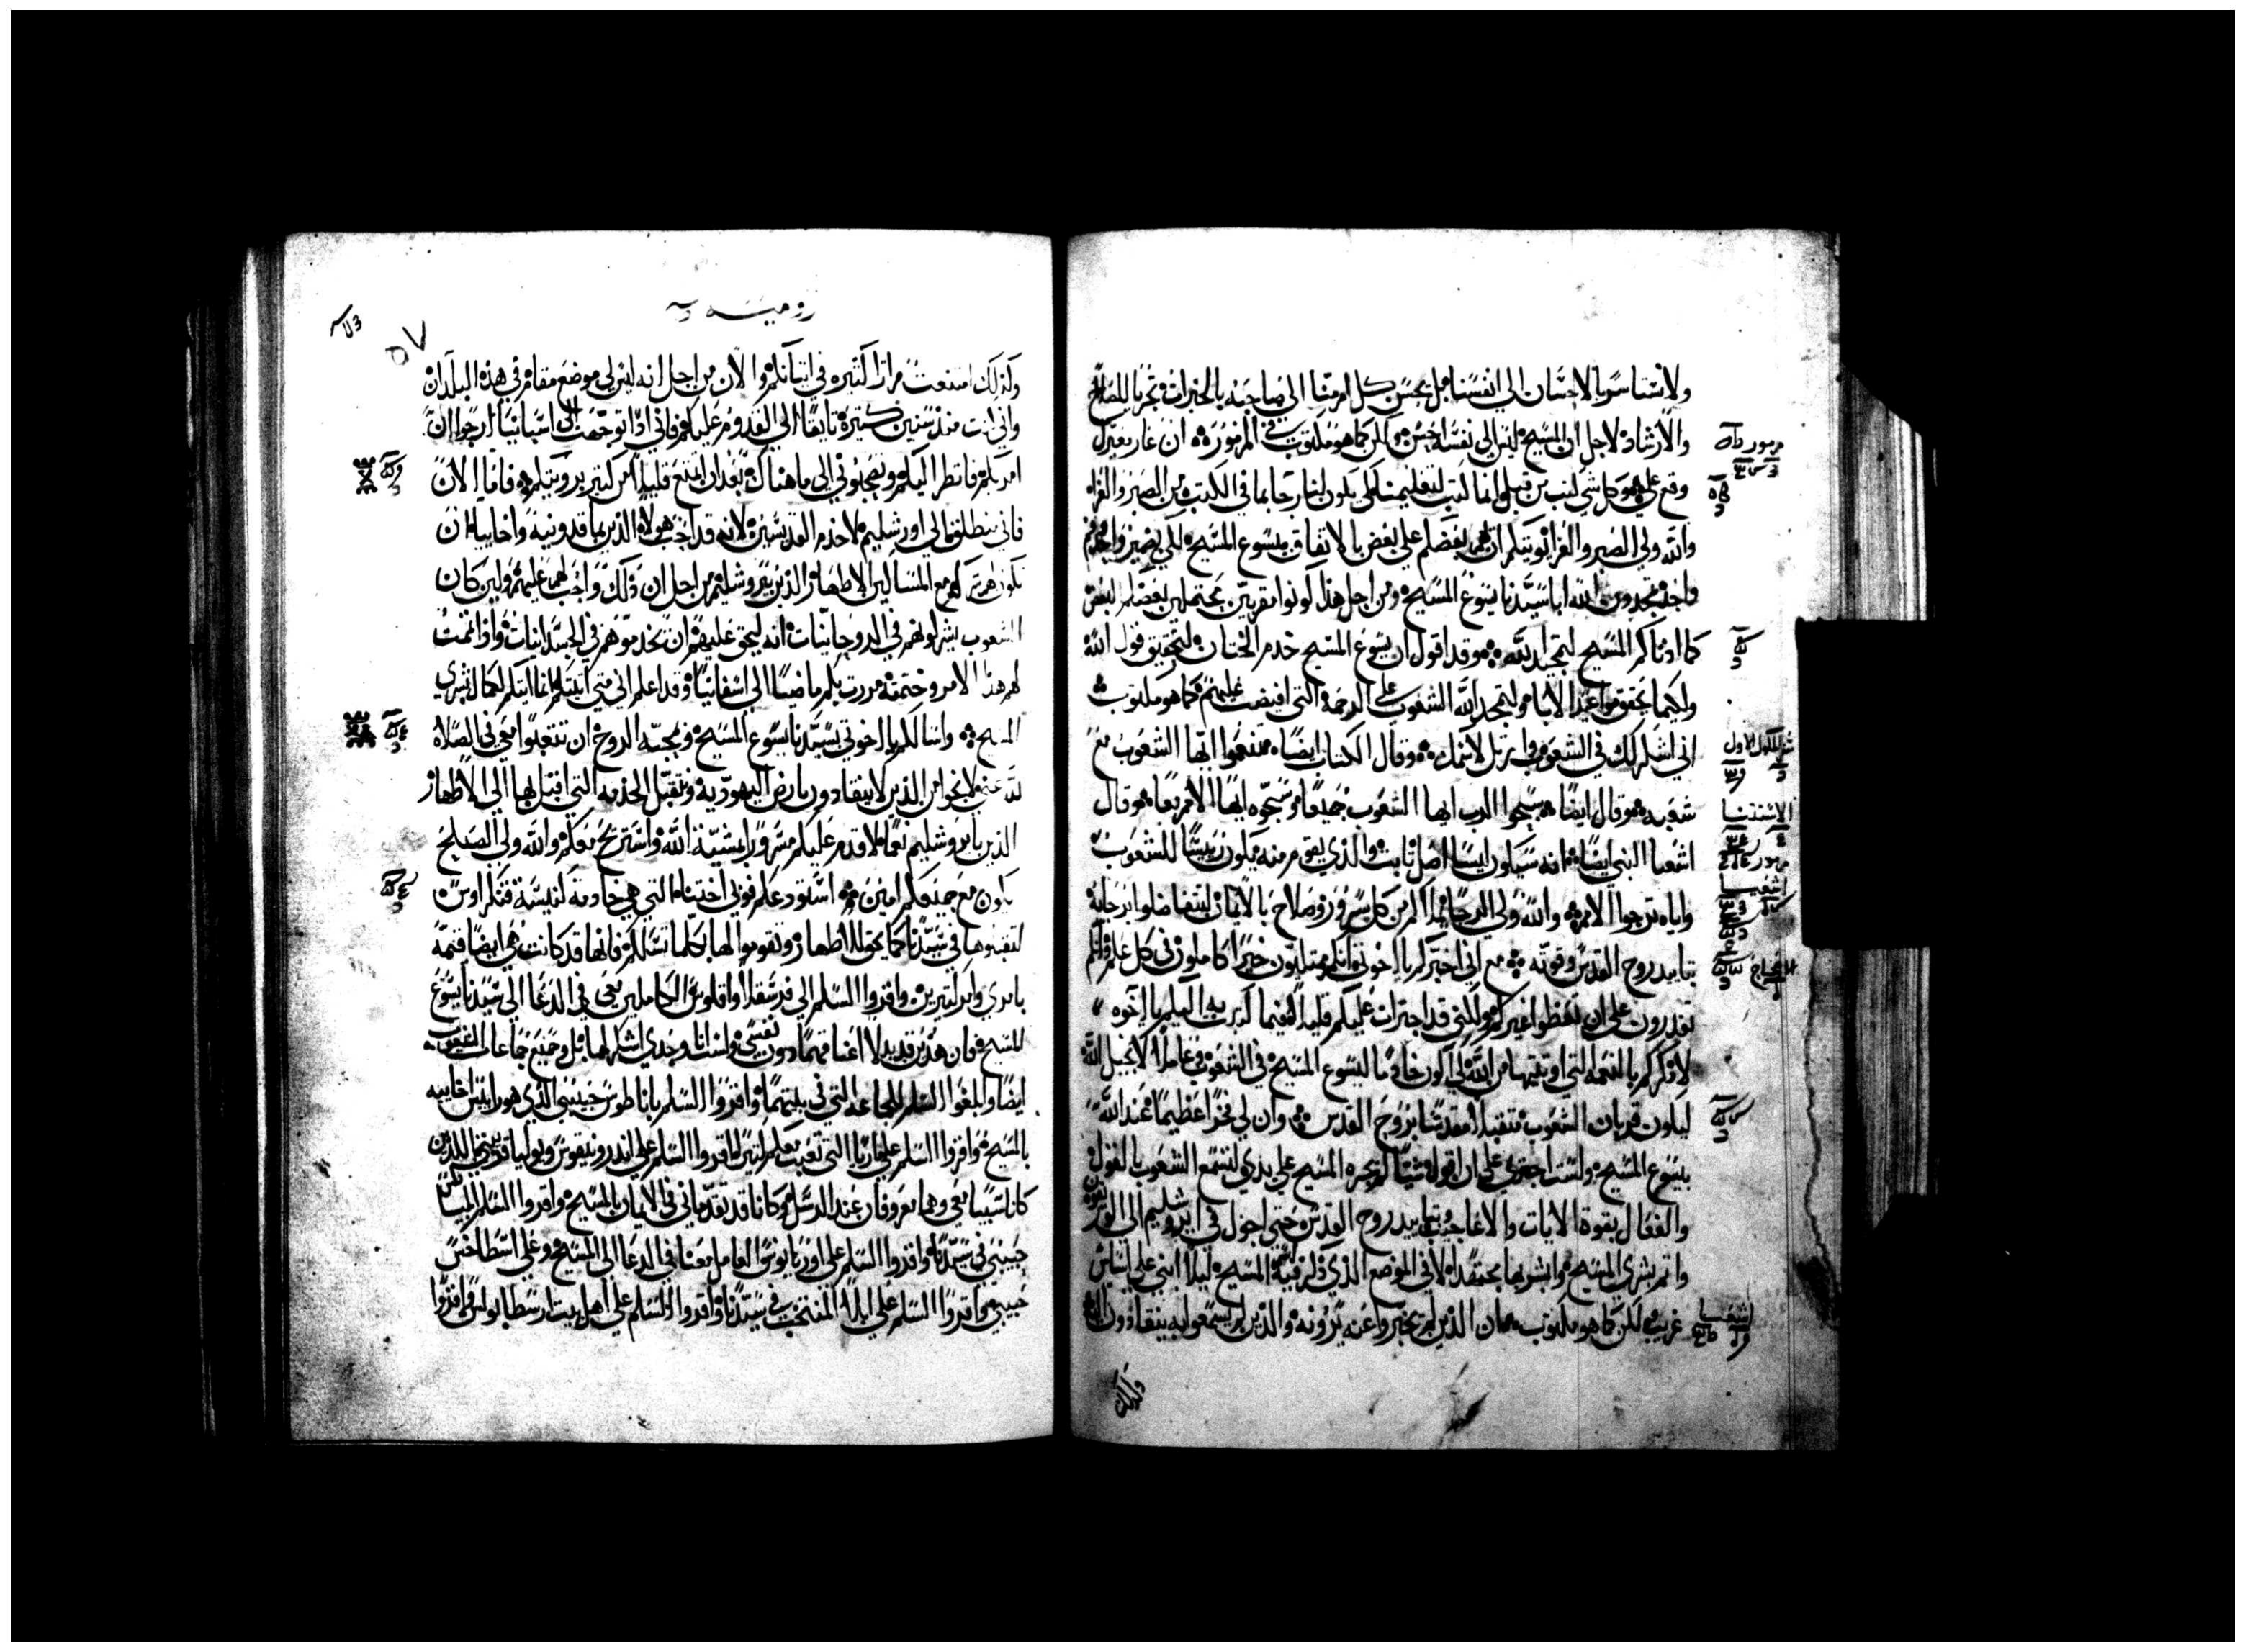 ولا نستاسر بالاحسان الى انفسنا بل يحسن كل امر منا الى صاحبه بالخيرات
والارشاد لاجل ان المسيح ليس الى نفسه احسن ولكن كما هو مكتوب في المزمور ان عار معير
وقع علي وكل شي كتب من قبل وانما كتب لتعليمنا لكي يكون لنا رجا بما في الكتب من الصبر والعزا
والله ولي الصبر والعزا يوتيكم ان بعضكم على بعض بالاتفاق بيسوع المسيح لكي بضمير واحد وفم
واحد تمجدون الله ابا سيدنا يسوع المسيح ومن اجل هذا كونوا مقربين محتملين بعضكم لبعض
كما ادناكم المسيح لتمجيد الله وقد اقول ان يسوع المسيح خدم الختان لتحقيق قول الله
ولكيما يحقق مواعيد الابا ولتمجد الله الشعوب على الرحمة التي افيضت عليهم كما هو مكتوب
اني اشكرك في الشعوب وارتل لاسمك وقال الكتاب ايضا تنعموا ايها الشعوب مع
شعبه وقال ايضا سبحوا الرب ايها الشعوب جميعا وسبحوه ايها الامم وقال
اشعيا النبي ايضا انه سيكون ايسا اصل ثابت والذي يقوم منه يكون رييسا للشعوب
واياه ترجوا الامم والله ولي الرجا يملاكم من كل سرور وصلاح بالايمان لتتفاضلوا برجايه
بتاييد روح القدس وقوته مع اني خبركم يا اخوتي انكم ممتليون خيرا كاملون في كل علم وانكم
تقدرون على ان تعظوا غيركم ولكني قد اجترات عليكم قليلا فيما كتبت به اليكم يا اخوه
لاذكركم بالنعمه التي اوتيتها من الله لكي اكون خادما ليسوع المسيح في الشعوب وعاملا لانجيل الله
ليكون قربان الشعوب متقبلا مقدسا بروح القدس وان لي فخرا عظيما عند الله
بيسوع المسيح ولست اجتري على ان اقول شيا لم يجره المسيح على يدي لتسمع الشعوب بالقول
والفعال بقوة الايات والاعاجيب وبتاييد روح القدس حتى اجول في ايروشليم الى
واتم بشرى المسيح وابشر بها مجتهدا لا في الموضع الذي ذكر فيه اسم المسيح ليلا ابني على اساس
غريب لكن كما هو مكتوب ان الذين لم يخبروا عنه يرونه والذين لم يسمعوا به ينقادون
ولذلك
مزمور
الاشتنا
مزمور
اشعيا
اشعيا
روميه
٥٧
ولذلك امتنعت مرارا كثيره في اتيانكم والان من اجل انه ليس لي موضع مقام في هذه البلدان
واني كنت منذ سنين كثيرة تايقا الى القدوم عليكم فاني اذا توجهت الى اسبانيا ارجوا ان
امر بكم فانظر اليكم وتصحبوني الى ما هناك بعد ان اتمتع قليلا من كثير برويتكم فاما الان
فاني منطلق الى اورشليم لاخدم القديسين لانه قد احب هولاء الذين بماقدونية واخاييا ان
تكون لهم شركه مع المساكين الاطهار الذين بيروشليم من اجل ان ذلك واجب لهم عليهم ولين كان
الشعوب شركوهم في الروحانيات انه ليحق عليهم ان يخدموهم في الجسدانيات واذا اتممت
لهم هذا الامر وختمته مررت بكم ماضيا الى اسفانيا وقد اعلم اني متى اتيتكم انما اتيكم بكمال بشرى
المسيح واسالكم يا اخوتي بسيدنا يسوع المسيح وبمحبة الروح ان تتعبوا معي في الصلاه
لله عني لانجوا من الذين لا ينقادون بارض اليهوديه وتتقبل الخدمه التي اقبل بها الى الاطهار
الذين بايروشليم لاقدم عليكم مسرورا بمشية الله واستريح معكم والله ولي الصلح
يكون مع جميعكم امين استودعكم فوبي اختنا التي هي خادمة كنيسة قنكراوس
لتقبلوها في سيدنا كما يحق للاطهار وتقوموا لها بكلما تسالكم فانها قد كانت هي ايضا قيمة
بامري وامر كثيرين واقروا السلم الى فرسقلا واقلوس العاملين معي في الدعا الى سيدنا يسوع
المسيح فان هذين بذلا اعناقهما دون نفسي ولست انا وحدي اشكرهما بل وجميع جماعات الشعوب
ايضا وابلغوا السلم للجماعه التي في بيتهما واقروا السلم باناطوس حبيبي الذي هو راس اخاييه
بالمسيح واقروا السلم على ماريا التي تعبت معكم كثيرا واقروا السلم على اندرونيقوس ويوليا قريبي اللذين
كانا سبيا معي وهما معروفان عند الرسل وكانا قد تقدماني في الايمان بالمسيح واقروا السلم
حبيبي في سيدنا واقروا السلم على اوربانوس العامل معنا في الدعا الى المسيح وعلى اسطاخس
حبيبي واقروا السلم على ابلا المنتخب في سيدنا واقروا السلم على اهل بيت ارسطابولس واقروا